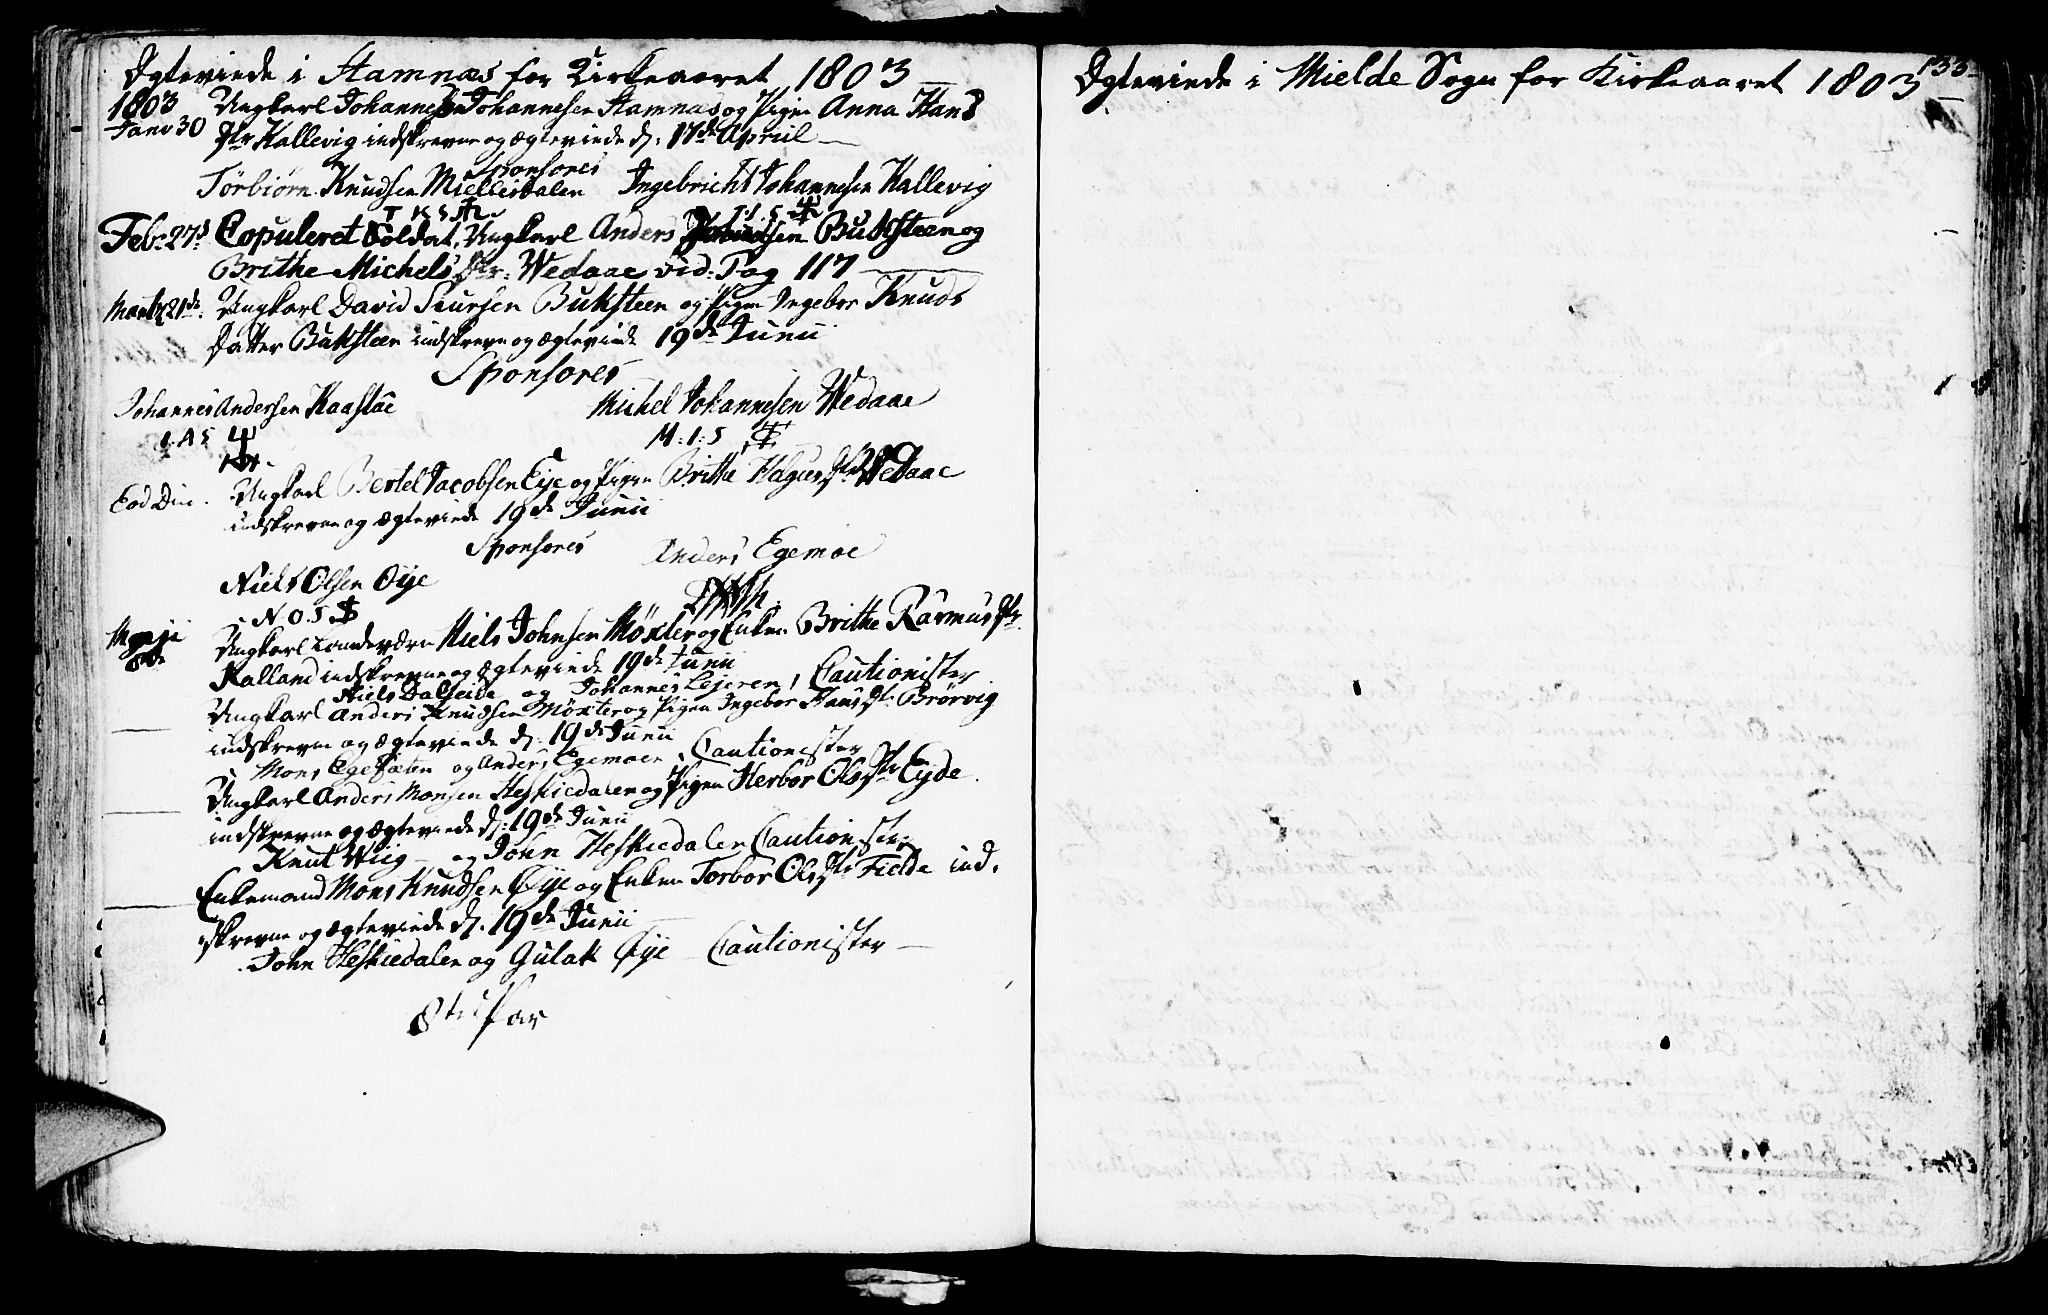 Ægteviede i Hamnæs for Kirkeaaret 1803
1803 Ungkarl Johannes Johannesen Stamnas og Pigen Anna Hans
Janv 30 Dtr Kallevig indskrevne og ægteviede d: 17de April
Sponsores
Törbiörn Knudsen Miellesdalen Ingebricht Johannesen Kallevig
T K S I. I. S
Feb: 27d Copuleret Soldat, Ungkarl Anders Buksteen og
Brithe Michels Dtr: Wedaae vid: Pag 117
Marty 21de Ungkarl David Siursen Buksteen og Pigen Ingebor Knuds
Datter Buksteen indskrevne og ægteviede 19de Junii
Sponsores
Johannes Andersen Kaastae Michel Johannesen Wedaae
I: A S M: I: S
Eod Die. Ungkarl Bertel Jacobsen Eije og Pigen Britha Hagues Dtr Wedaae
indskrevne og ægteviede 19de Junii
Sponsores
Anders Egemoe
Niels Olsen Öije
N. O. S
Maji 8de Ungkarl Landeværn Niels Johnsen Möxter og Enken Brithe Rasmus Dtr
Kalland indskrevne og ægteviede 19de Junii
Niels Dalseide og Johannes Lejeren, Cautionister
Ungkarl Anders Knudsen Möxter og Pigen Ingebor Hans Dtr Brörvig
indskrevne og ægteviede d: 19de Junii
Mons Egesæter og Anders Egemoen, Cautionister
Ungkarl Anders Monsen Heskiedalen og Pigen Herbor Ols Dtr Eyde
indskrevne og ægteviede d: 19de Junii
Knut Wiig og John Heskiedalen Cautionister
Enkemand Mons Knudsen Öije og Enken Torbor Ols Dtr Fielde ind,
skrevne og ægteviede d. 19de Junii
John Heskiedalen og Gulak Öije Cautionister
8te Par
133
Ægteviede i Mielde Sogn for Kirkeaaret 1803